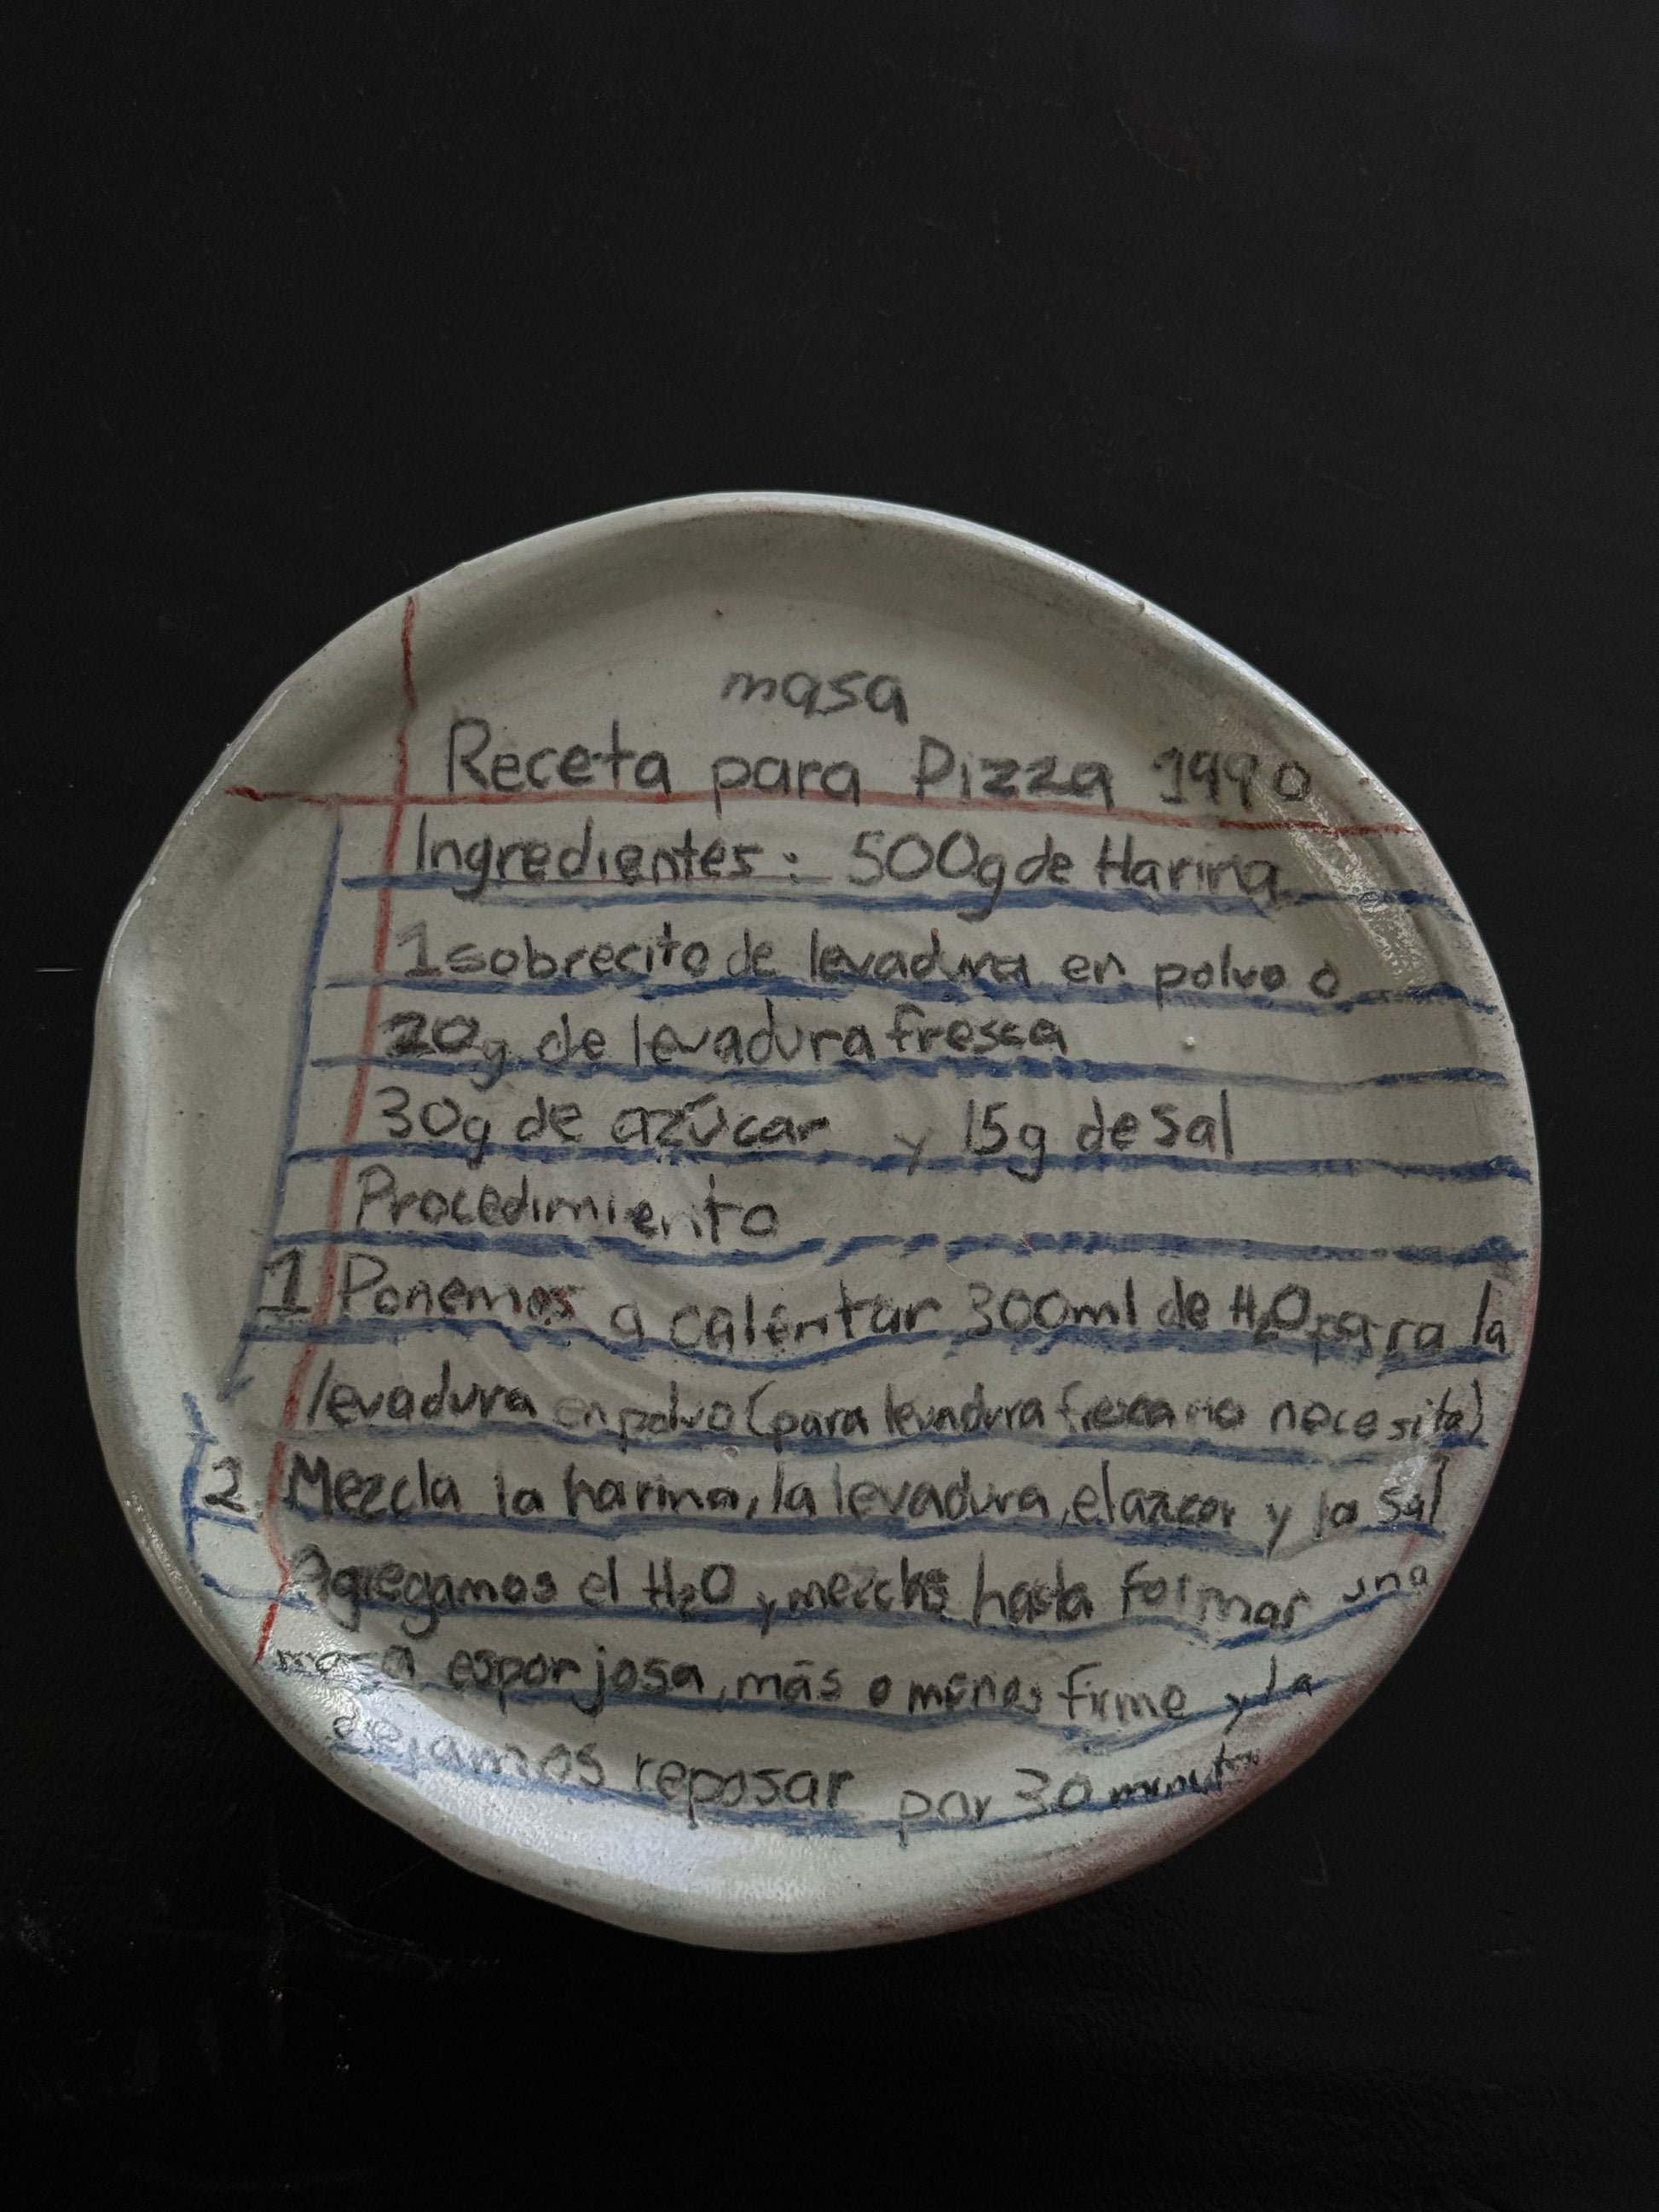 masa
Receta para Pizza 1990
Ingredientes: 500g de Harina
1 sobrecito de levadura en polvo o
20g de levadura fresca
30g de azúcar y 15g de sal
Procedimiento
1 Ponemos a calentar 300ml de H₂O para la
levadura en polvo (para levadura fresca no necesita)
2 Mezcla la harina, la levadura, el azcar y la sal
Agregamos el H₂O y mezcla hasta formar una
masa esponjosa, más o menos firme y la
dejamos reposar por 30 minutos